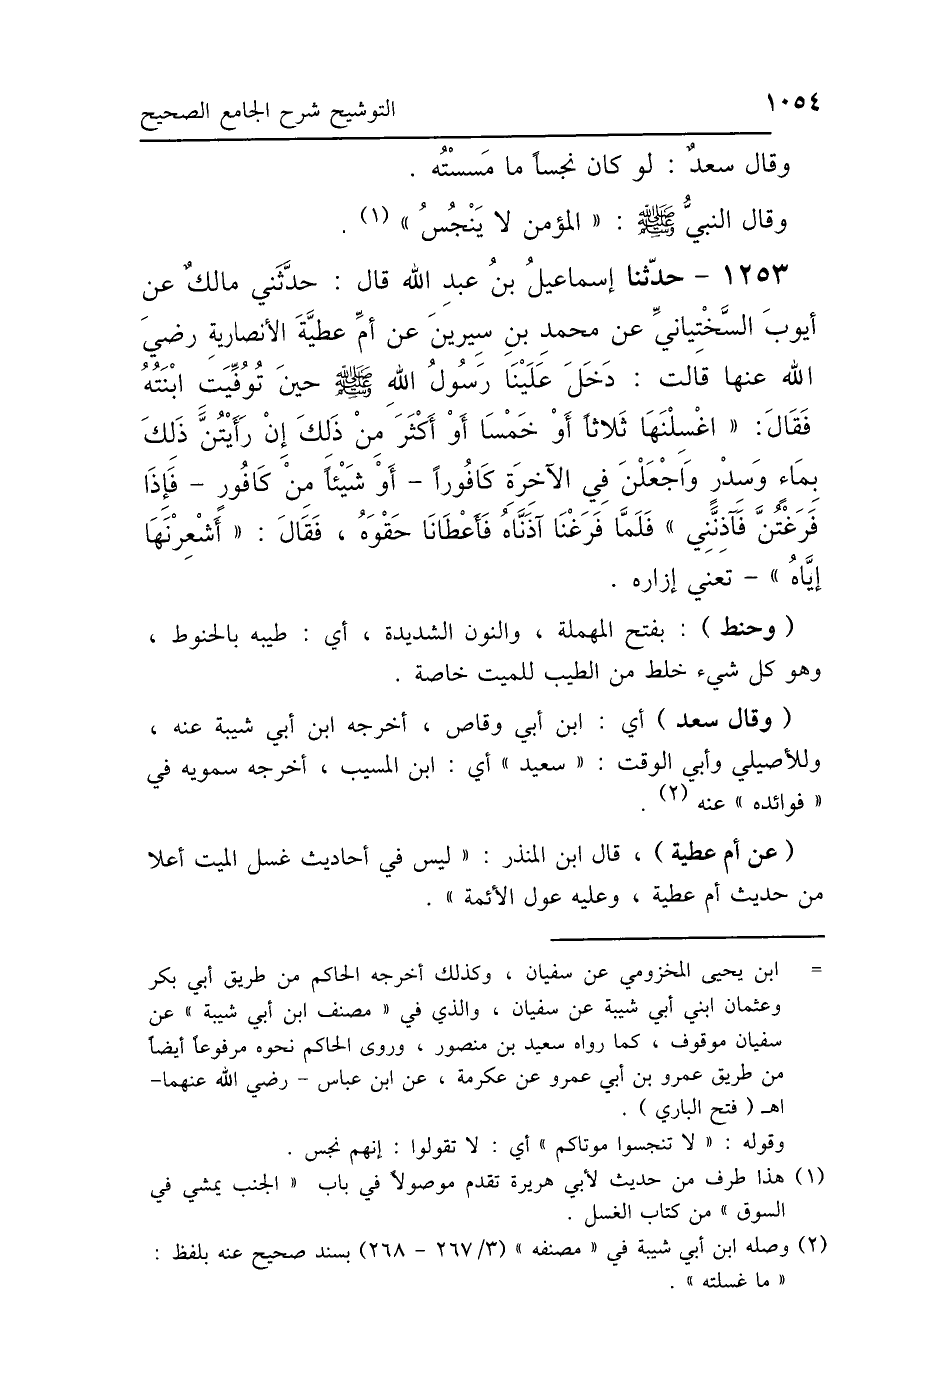 ١٠٥٤
التوشيح شرح الجامع الصحيح
وقال سعدٌ : لو كان نجساً ما مَسسْتُه .
وقال النبيُّ ﷺ : « المؤمن لا يَنْجُسُ » (١) .
١٢٥٣ – حدّثنا إسماعيلُ بنُ عبدِ الله قال : حدَّثَني مالكٌ عن
أيوبَ السَّخْتِيانيِّ عن محمدِ بنِ سيرينَ عن أمِّ عطيَّةَ الأنصارية رضيَ
الله عنها قالت : دَخَلَ عَلَيْنَا رَسُولُ الله ﷺ حينَ تُوُفِّيَت ابْنَتُهُ
فَقَالَ: « اغْسِلْنَهَا ثَلاثاً أَوْ خَمْسَا أَوْ أَكْثَرَ مِنْ ذَلِكَ إِنْ رَأَيْتُنَّ ذَلكَ
بِمَاءٍ وَسِدْرٍ وَاجْعَلْنَ فِي الآخرَةِ كَافُوراً – أَوْ شَيْئاً مِنْ كَافُورٍ – فَإِذَا
فَرَغْتُنَّ فَآذِنَّنِي » فَلَمَّا فَرَغْنَا آذَنَّاهُ فَأَعْطَانَا حَقْوَهُ ، فَقَالَ : « أَشْعِرْنَهَا
إِيَّاهُ » – تعني إزاره .
( وحنط ) : بفتح المهملة ، والنون الشديدة ، أي : طيبه بالحنوط ،
وهو كل شيء خلط من الطيب للميت خاصة .
( وقال سعد ) أي : ابن أبي وقاص ، أخرجه ابن أبي شيبة عنه ،
وللأصيلي وأبي الوقت : « سعيد » أي : ابن المسيب ، أخرجه سمويه في
« فوائده » عنه (٢) .
( عن أم عطية ) ، قال ابن المنذر : « ليس في أحاديث غسل الميت أعلا
من حديث أم عطية ، وعليه عول الأئمة » .
= ابن يحيى المخزومي عن سفيان ، وكذلك أخرجه الحاكم من طريق أبي بكر
وعثمان ابني أبي شيبة عن سفيان ، والذي في « مصنف ابن أبي شيبة » عن
سفيان موقوف ، كما رواه سعيد بن منصور ، وروى الحاكم نحوه مرفوعاً أيضاً
من طريق عمرو بن أبي عمرو عن عكرمة ، عن ابن عباس – رضي الله عنهما–
اهـ ( فتح الباري ) .
وقوله : « لا تنجسوا موتاكم » أي : لا تقولوا : إنهم نجس .
(١) هذا طرف من حديث لأبي هريرة تقدم موصولاً في باب « الجنب يمشي في
السوق » من كتاب الغسل .
(٢) وصله ابن أبي شيبة في « مصنفه » (٢٦٧/٣ – ٢٦٨) بسند صحيح عنه بلفظ :
« ما غسلته » .